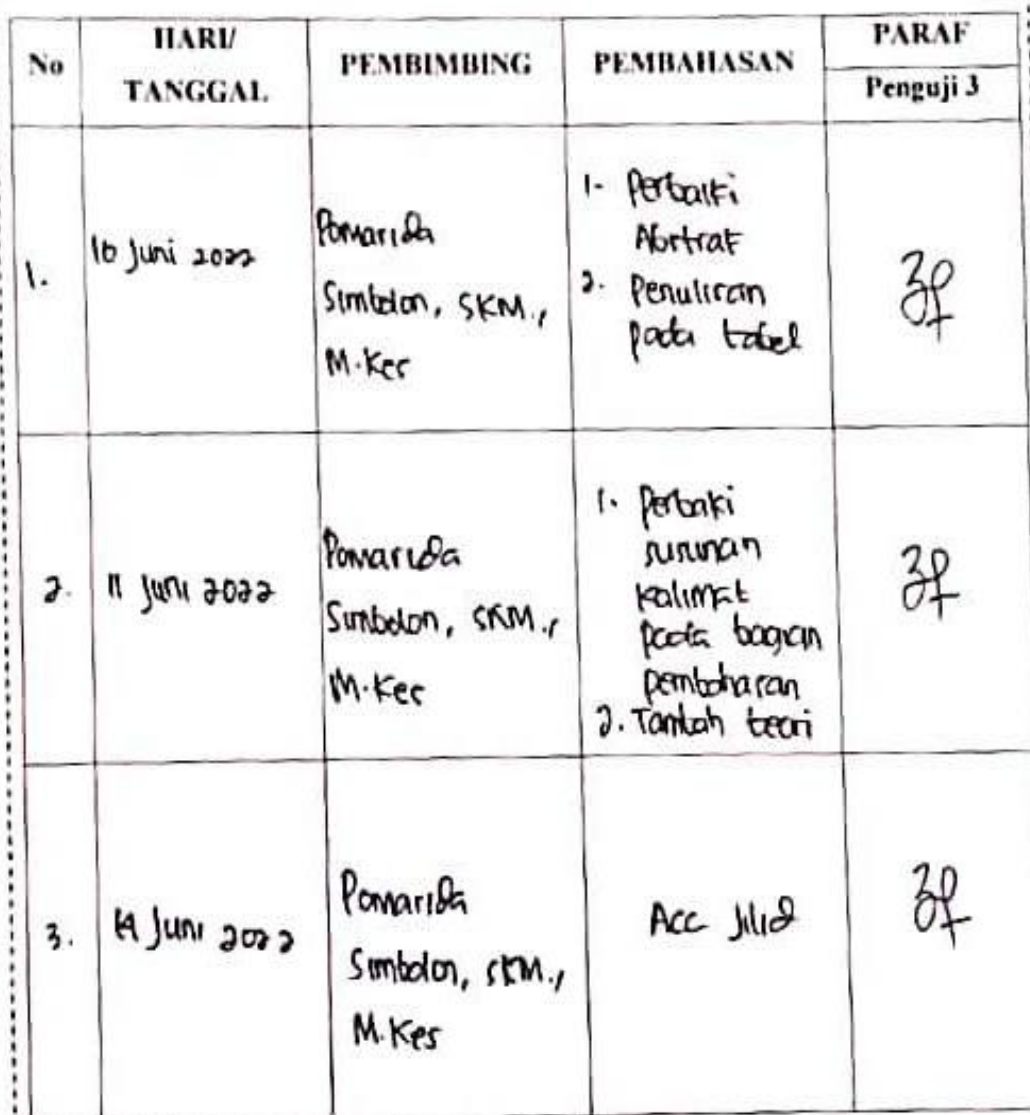 No
HARI/
TANGGAL
PEMBIMBING
PEMBAHASAN
PARAF
Penguji 3
1.
10 Juni 2022
Pomarida
Simbolon, SKM.,
M.Kes
1. Perbaiki
Abstrak
2. Penulisan
pada tabel
2.
11 Juni 2022
Pomarida
Simbolon, SKM.,
M.Kes
1. Perbaki
susunan
kalimat
pada bagian
pembahasan
2. Tambah teori
3.
14 Juni 2022
Pomarida
Simbolon, SKM.,
M.Kes
Acc Jilid